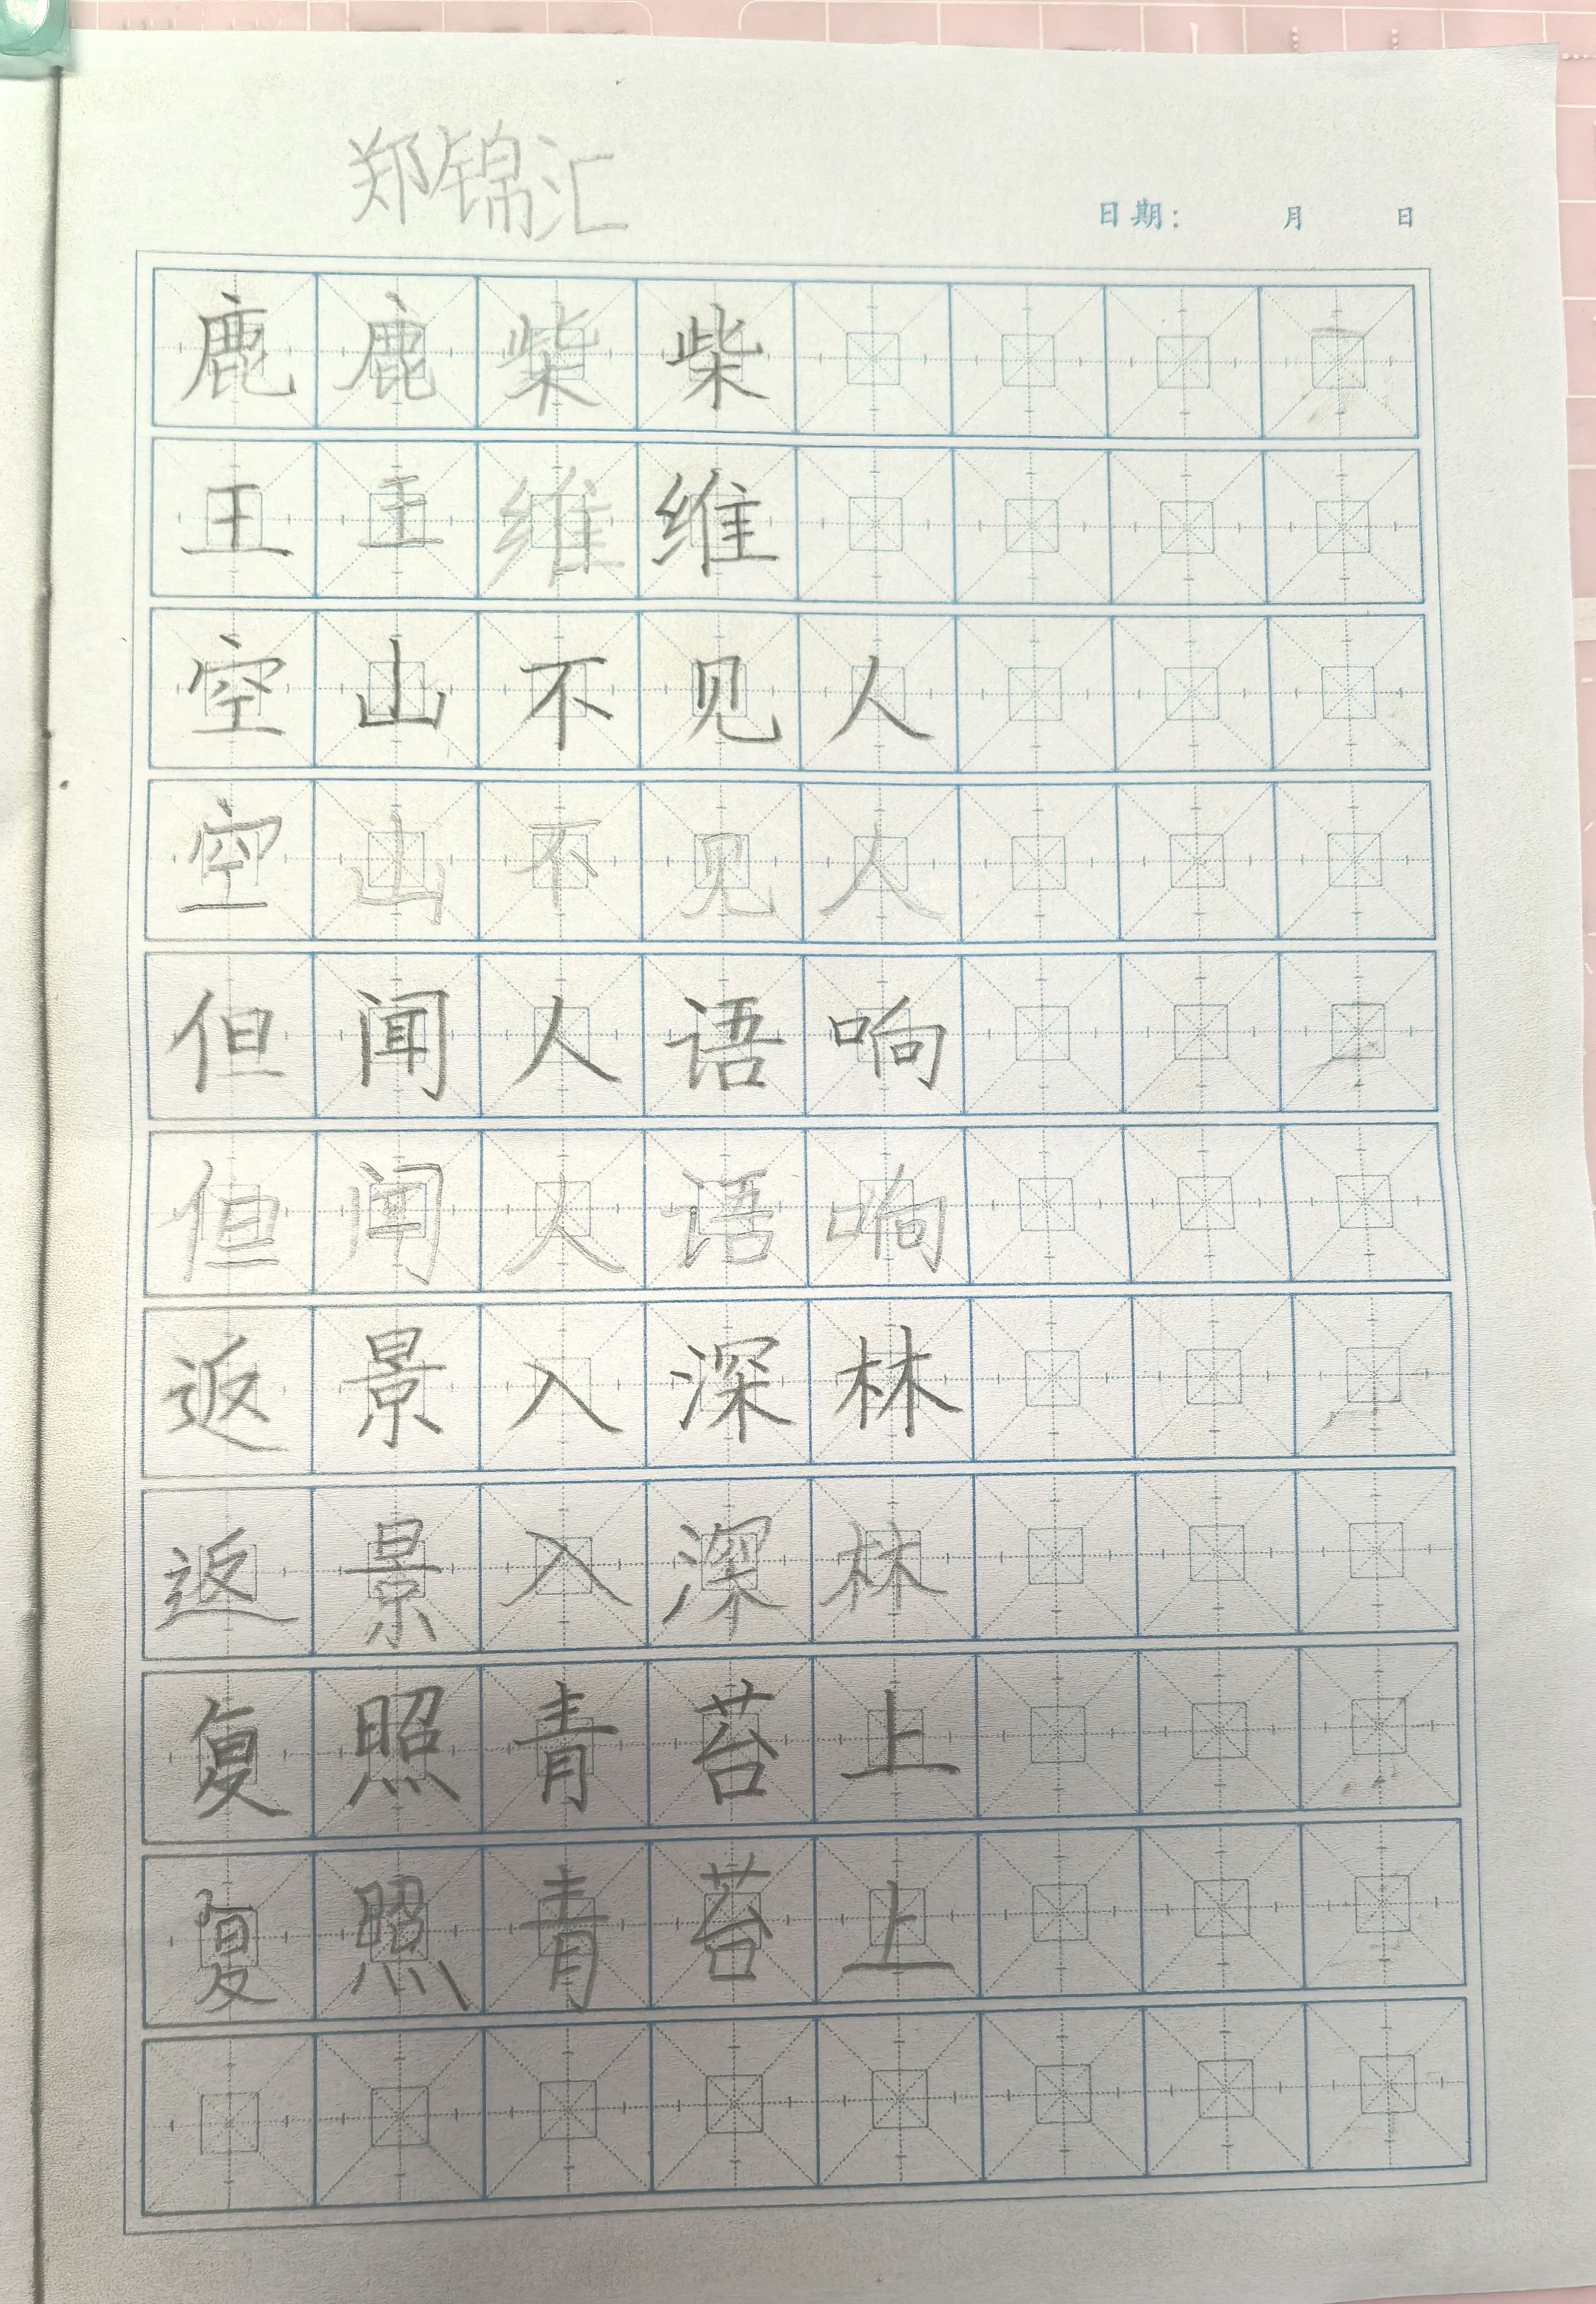 郑锦汇
日期： 月 日
鹿鹿柴柴
王王维维
空山不见人
空山不见人
但闻人语响
但闻人语响
返景入深林
返景入深林
复照青苔上
复照青苔上